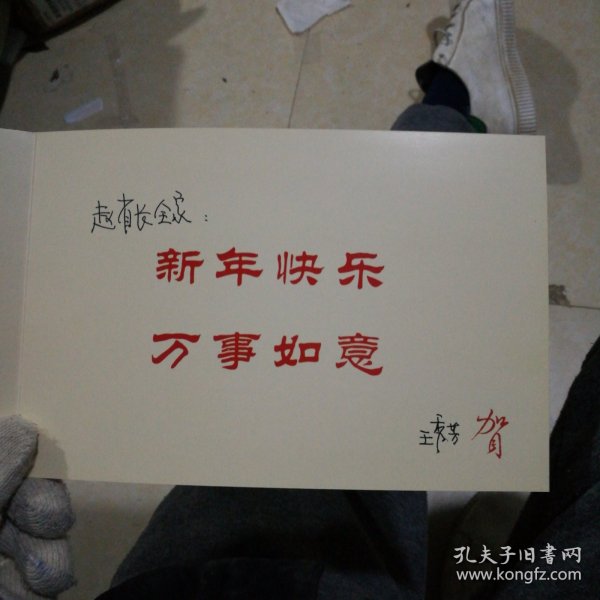 赵省长全家：
新年快乐
万事如意
王秀芳 贺
孔夫子旧书网
www.kongfz.com